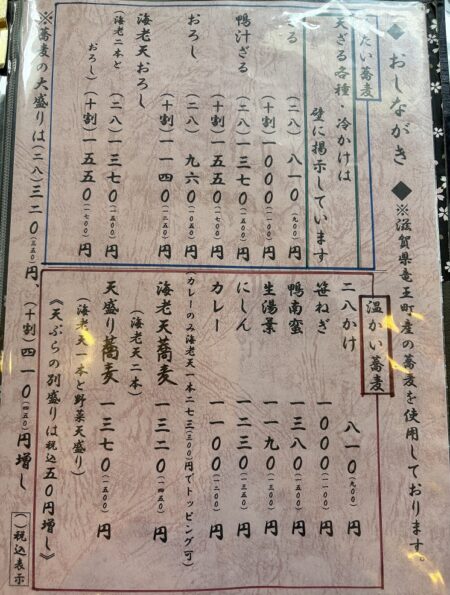 ◆ おしながき ◆ ※滋賀県竜王町産の蕎麦を使用しております。
冷たい蕎麦
天ざる各種・冷かけは
壁に掲示しています
ざる (二八) 八一〇(九〇〇)円
(十割) 一〇〇〇(一一〇〇)円
鴨汁ざる (二八) 一三七〇(一五〇〇)円
(十割) 一五五〇(一七〇〇)円
おろし (二八) 九六〇(一〇五〇)円
(十割) 一一四〇(一二五〇)円
海老天おろし (二八) 一三七〇(一五〇〇)円
(海老二本とおろし) (十割) 一五五〇(一七〇〇)円
※蕎麦の大盛りは(二八)三二〇(三五〇)円、(十割)四一〇(四五〇)円増し
温かい蕎麦
二八かけ 八一〇(九〇〇)円
笹ねぎ 一〇〇〇(一一〇〇)円
鴨南蛮 一三八〇(一五〇〇)円
生湯葉 一一九〇(一三〇〇)円
にしん 一二三〇(一三五〇)円
カレー 一一〇〇(一二〇〇)円
(カレーのみ海老天一本二七三(三〇〇)円でトッピング可)
海老天蕎麦 一三二〇(一四五〇)円
(海老天二本)
天盛り蕎麦 一三七〇(一五〇〇)円
(海老天一本と野菜天盛り)
《天ぷらの別盛りは税込五〇円増し》
( )税込表示